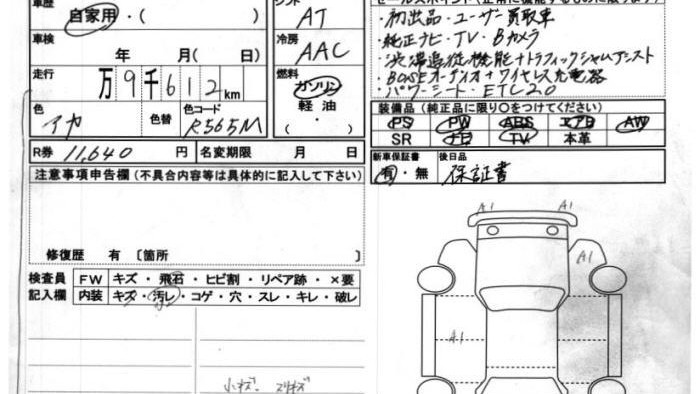 車歴
自家用・(　　)
シフト
AT
車検
年　月(　日)
冷房
AAC
走行
万9千612km
燃料
ガソリン
軽油
(・　)
色
アカ
色替
色コード
R565M
R券 11,640 円
名変期限　月　日
注意事項申告欄(不具合内容等は具体的に記入して下さい)
修復歴　有〔箇所　　〕
検査員
記入欄
FW キズ・飛石・ヒビ割・リペア跡・×要
内装 キズ・汚レ・コゲ・穴・スレ・キレ・破レ
小キズ・スリキズ
セールスポイント(正常に機能するものに限ります)
・初出品・ユーザー買取車
・純正ナビ・TV・Bカメラ
・渋滞追従機能+トラフィックジャムアシスト
・BOSEオーディオ+ワイヤレス充電器
・パワーシート・ETC2.0
装備品(純正品に限り〇をつけてください)
PS PW ABS エアB AW
SR ナビ TV 本革
新車保証書
有・無
後日品
保証書
A1
A1
A1
A1